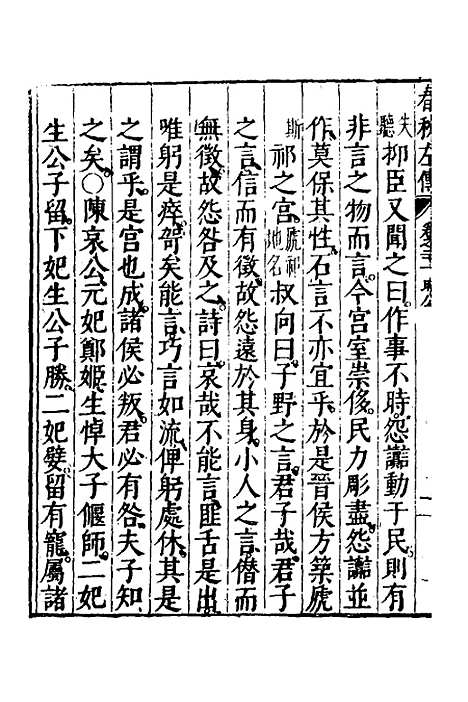 春秋左傳
失聽抑臣又聞之曰作事不時怨讟動于民則有
非言之物而言今宮室崇侈民力彫盡怨讟並
作莫保其性石言不亦宜乎於是晉侯方築虒
斯祁之宮虒祁地名叔向曰子野之言君子哉君子
之言信而有徵故怨遠於其身小人之言僭而
無徵故怨咎及之詩曰哀哉不能言匪舌是出
唯躬是瘁哿矣能言巧言如流俾躬處休其是
之謂乎是宮也成諸侯必叛君必有咎夫子知
之矣○陳哀公元妃鄭姬生悼大子偃師二妃
生公子留下妃生公子勝二妃嬖留有寵屬諸